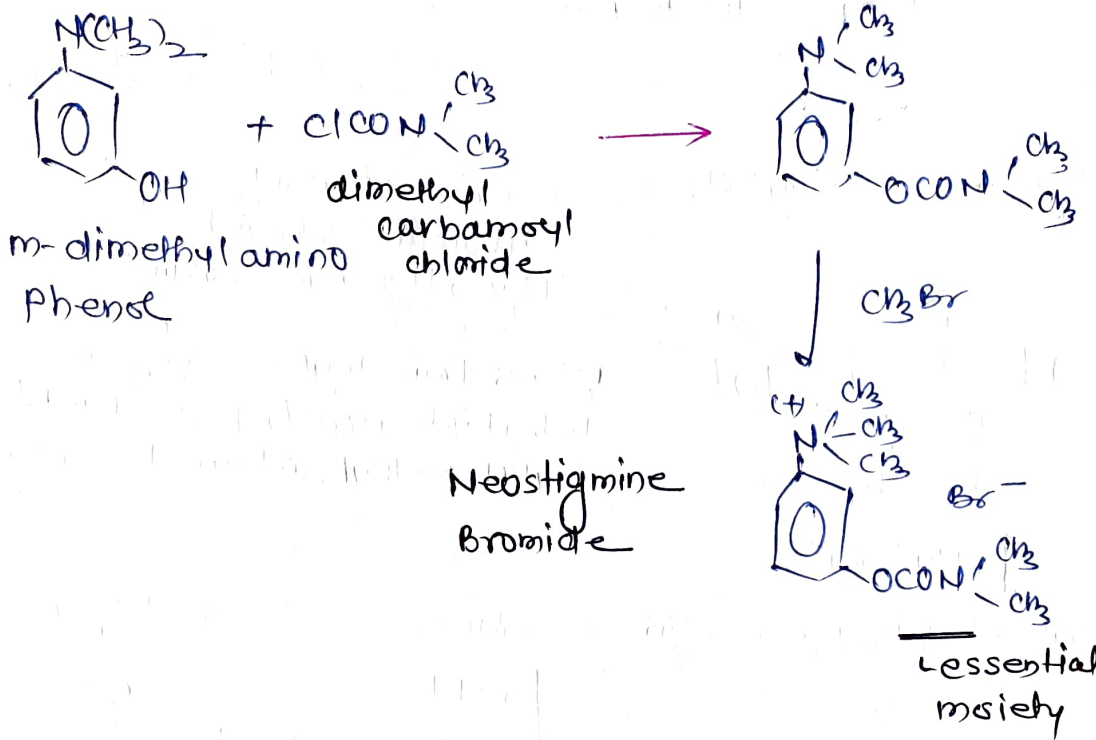 N(CH3)2
OH
m-dimethyl amino
Phenol
+ ClCON CH3
CH3
dimethyl
carbamoyl
chloride
N CH3
CH3
OCON CH3
CH3
CH3Br
(+) CH3
N CH3
CH3
Br−
OCON CH3
CH3
Neostigmine
Bromide
essential
moiety